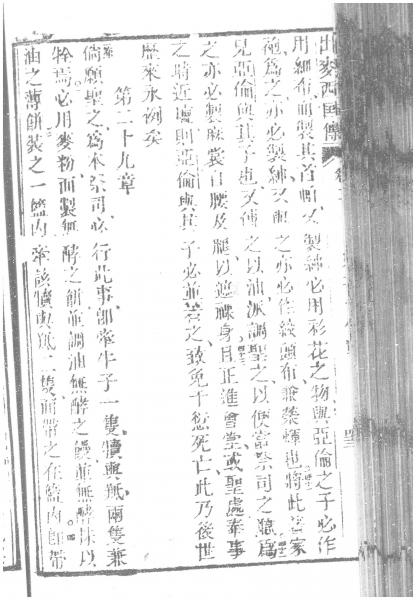 出麥西國傳
用細布而製其首帕又製紳必用彩花之物與亞倫之子必作
袍為之亦必製紳又
之亦必作緞頭布兼榮輝也將此
兄亞倫與其子也又傅之以油派調聖之以便當祭司之職焉
之亦必製麻裳自腰及腿以遮裸身且正進會堂或聖處奉事
之時近壇則亞倫與其子必並著之致免干愆死亡此乃後世
歷來永例矣
第二十九章
倘願聖之為本祭司必行此事即牽牛子一隻犢與羝兩隻兼
牷焉必用麥粉而製無酵之餅並調油無酵之饅並無酵抹以
油之薄餅裝之一籃內牽該犢與羝二隻而帶之在籃內即帶